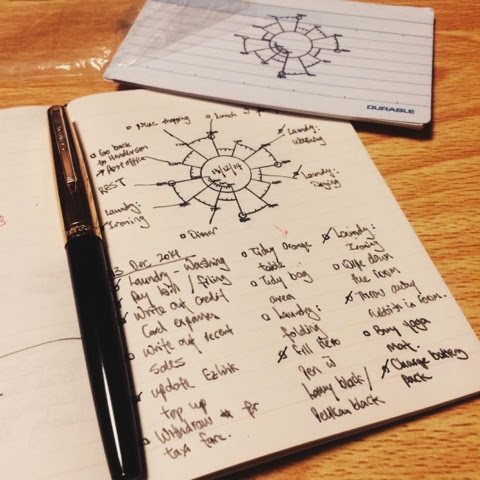 DURABLE
Go back
to Henderson
Post office
REST
Laundry:
Ironing
Dinner
Lunch
Laundry:
Washing
Laundry:
Drying
13/12/14
13 Dec 2014
Laundry - Washing
Pay bills / Filing
Write out credit
Card expenses
Write out recent
sales
update Ezlink
top up
Withdraw # for
taxi fare.
Tidy orange
table
Tidy bag
area
Laundry:
folding
Fill Hero
Pen w
Lamy black /
Pelikan black
Laundry:
Ironing
Wipe down
the room
Throw away
rubbish in room.
Buy Yoga
mat.
Change battery
pack